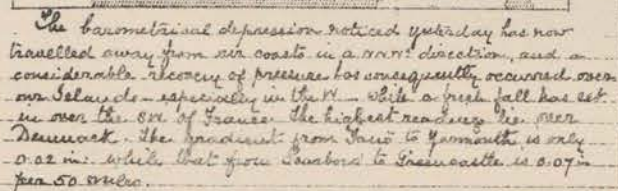 The barometrical depression noticed yesterday has now
travelled away from our coasts in a N.N.W. direction, and a
considerable recovery of pressure has consequently occurred over
our Islands - especially in the W - while a fresh fall has set
in over the SW. of France. The highest readings lie over
Denmark. The gradient from Fanö to Yarmouth is only
0.02 in: while that from Scarboro' to Greencastle is 0.07 in
per 50 miles.